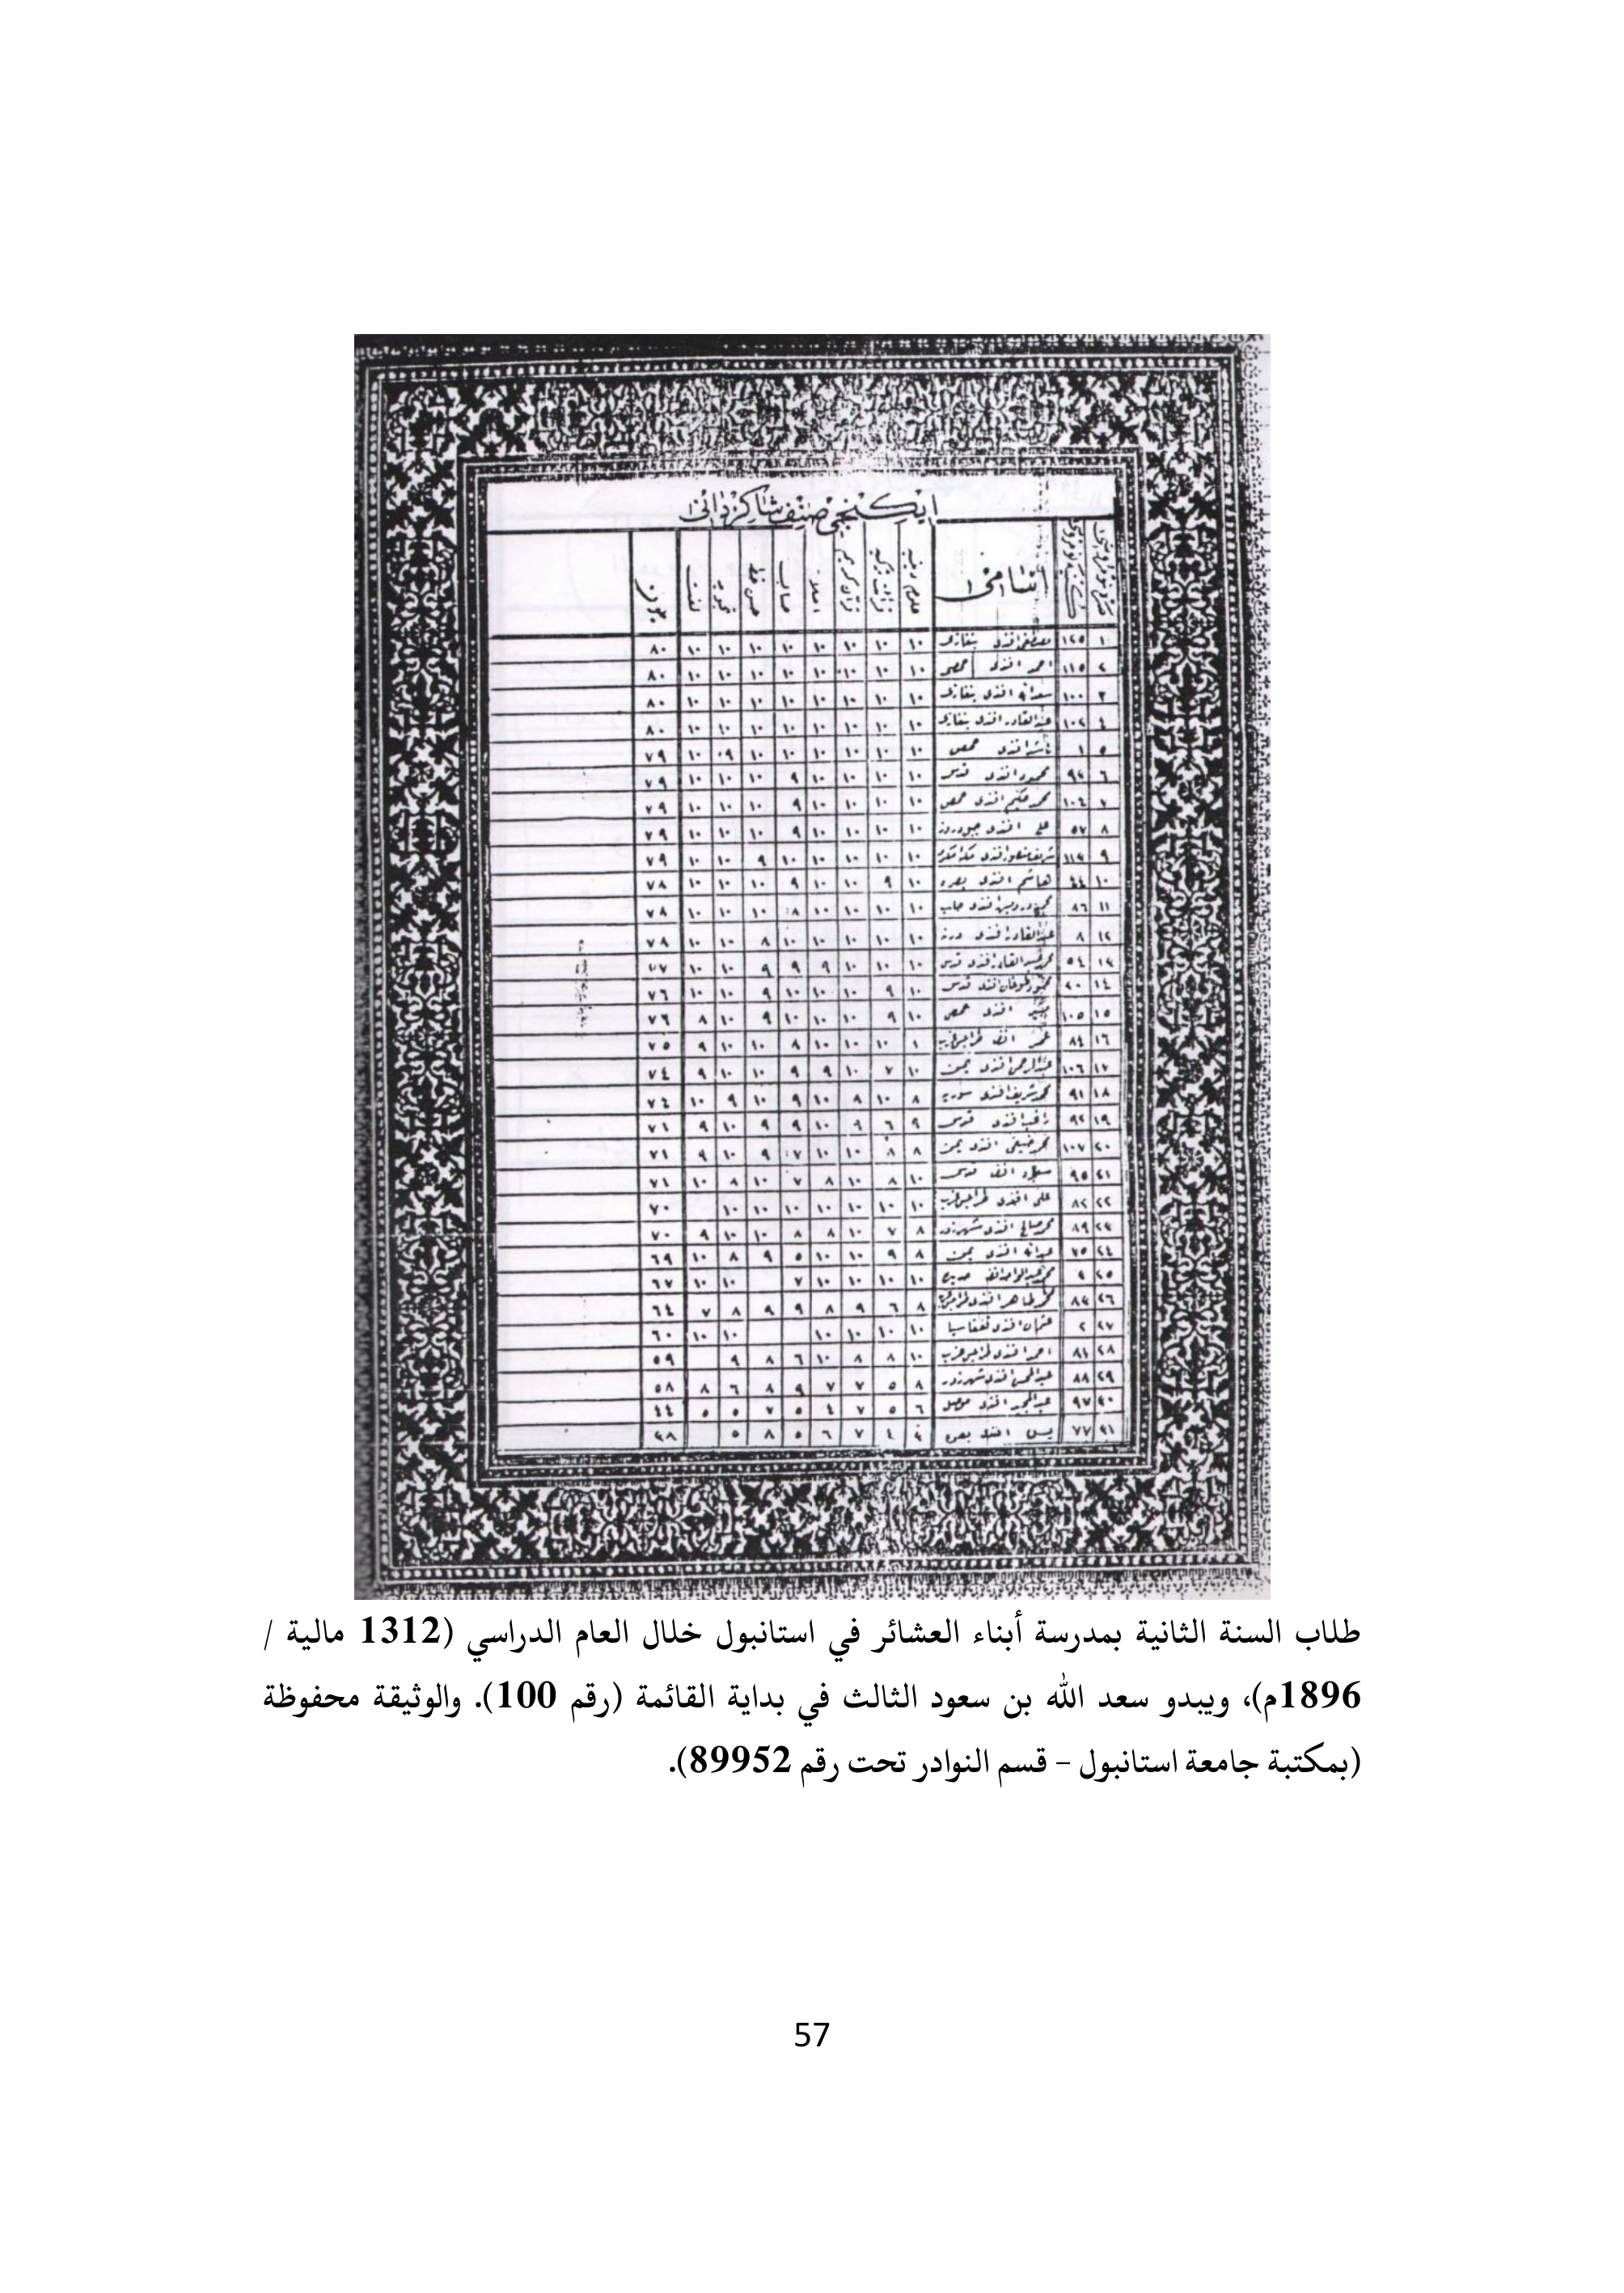 ايكنجى صنف شاكردانى
اسامى
علوم دينيه
قرائت تركيه
قرآن كريم
املا
حساب
حسن خط
تجويد
لغت
١ ١٢٥ مصطفى افندى بنغازى ١٠ ١٠ ١٠ ١٠ ١٠ ١٠ ١٠ ١٠ ٨٠
٢ ١١٥ احمد افندى حمص ١٠ ١٠ ١٠ ١٠ ١٠ ١٠ ١٠ ١٠ ٨٠
٣ ١٠٠ سعدالله افندى بنغازى ١٠ ١٠ ١٠ ١٠ ١٠ ١٠ ١٠ ١٠ ٨٠
٤ ١٠٢ عبدالقادر افندى بنغازى ١٠ ١٠ ١٠ ١٠ ١٠ ١٠ ١٠ ١٠ ٨٠
٥ ١ افندى حمص ١٠ ١٠ ١٠ ١٠ ١٠ ١٠ ٩ ١٠ ٧٩
٦ ٩٣ محمود افندى قدس ١٠ ١٠ ١٠ ١٠ ٩ ١٠ ١٠ ١٠ ٧٩
٧ محمد حكيم افندى حمص ١٠ ١٠ ١٠ ١٠ ٩ ١٠ ١٠ ١٠ ٧٩
٨ ٥٧ على افندى ١٠ ١٠ ١٠ ١٠ ٩ ١٠ ١٠ ١٠ ٧٩
٩ ١١٣ شريف افندى ١٠ ١٠ ١٠ ١٠ ١٠ ٩ ١٠ ١٠ ٧٩
١٠ ٤٤ هاشم افندى بصره ١٠ ٩ ١٠ ١٠ ٩ ١٠ ١٠ ١٠ ٧٨
١١ ٨٦ افندى حلب ١٠ ١٠ ١٠ ١٠ ٨ ١٠ ١٠ ١٠ ٧٨
١٢ ٨ عبدالقادر افندى ١٠ ١٠ ١٠ ١٠ ١٠ ٨ ١٠ ١٠ ٧٨
١٣ ٥٤ افندى قدس ١٠ ١٠ ١٠ ٩ ٩ ٩ ١٠ ١٠ ٧٧
١٤ ٢٠ افندى قدس ١٠ ٩ ١٠ ١٠ ١٠ ٩ ١٠ ١٠ ٧٦
١٥ ١٠٥ افندى حمص ١٠ ٩ ١٠ ١٠ ١٠ ٩ ١٠ ٨ ٧٦
١٦ ٨٤ طرابلس غرب ١٠ ١٠ ١٠ ٨ ١٠ ١٠ ٩ ٧٥
١٧ ١٠٦ عبدالرحمن افندى يمن ١٠ ٧ ١٠ ٩ ٩ ١٠ ١٠ ٩ ٧٤
١٨ ٩١ محمد شريف افندى سوريه ٨ ١٠ ٨ ١٠ ٩ ١٠ ٩ ١٠ ٧٤
١٩ ٩٢ راغب افندى قدس ٩ ٦ ٩ ١٠ ٩ ٩ ١٠ ٩ ٧١
٢٠ ١٠٧ افندى يمن ٨ ٨ ١٠ ١٠ ٧ ٩ ١٠ ٩ ٧١
٢١ ٩٥ قدس ١٠ ٨ ١٠ ٨ ٧ ١٠ ٨ ١٠ ٧١
٢٢ ٨٢ على افندى طرابلس غرب ١٠ ١٠ ١٠ ١٠ ١٠ ١٠ ١٠ ٧٠
٢٣ ٨٩ محمد صالح افندى شهرزور ٨ ٧ ١٠ ٨ ٨ ١٠ ١٠ ٩ ٧٠
٢٤ ٧٥ عبدالله افندى يمن ٨ ٩ ١٠ ١٠ ٥ ٩ ٨ ١٠ ٦٩
٢٥ ١٠ ١٠ ١٠ ١٠ ٧ ١٠ ١٠ ٦٧
٢٦ ٨٣ محمد طاهر افندى ٨ ٦ ٩ ٨ ٩ ٩ ٨ ٧ ٦٤
٢٧ ٢ عثمان افندى ١٠ ١٠ ١٠ ١٠ ١٠ ١٠ ٦٠
٢٨ ٨١ احمد افندى طرابلس غرب ١٠ ٨ ٨ ١٠ ٦ ٨ ٩ ٥٩
٢٩ ٨٨ افندى شهرزور ٨ ٥ ٧ ٧ ٩ ٨ ٦ ٨ ٥٨
٣٠ ٩٧ افندى موصل ٦ ٥ ٧ ٤ ٥ ٧ ٥ ٥ ٤٤
٣١ ٧٧ يس افندى بصره ٣ ٤ ٧ ٦ ٥ ٨ ٥ ٣٨
طلاب السنة الثانية بمدرسة أبناء العشائر في استانبول خلال العام الدراسي (1312 مالية /
1896م)، ويبدو سعد الله بن سعود الثالث في بداية القائمة (رقم 100). والوثيقة محفوظة
(بمكتبة جامعة استانبول – قسم النوادر تحت رقم 89952).
57